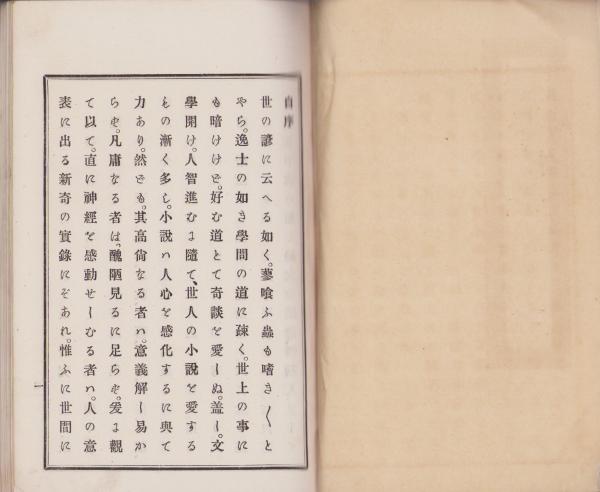 自序
世の諺に云へる如く。蓼喰ふ蟲も嗜き〱と
やら。逸士の如き學問の道に疎く。世上の事に
も暗けけど。好む道とて奇談を愛しぬ。盖し。文
學開け。人智進むに隨て、世人の小說を愛する
もの漸く多し。小說ハ人心を感化するに與て
力あり。然ども。其高尙なる者ハ。意義解し易か
らず。凡庸なる者は。醜陋見るに足らず。爰に觀
て以て。直に神經を感動せしむる者ハ。人の意
表に出る新奇の實錄にぞあれ。惟ふに世間に
一